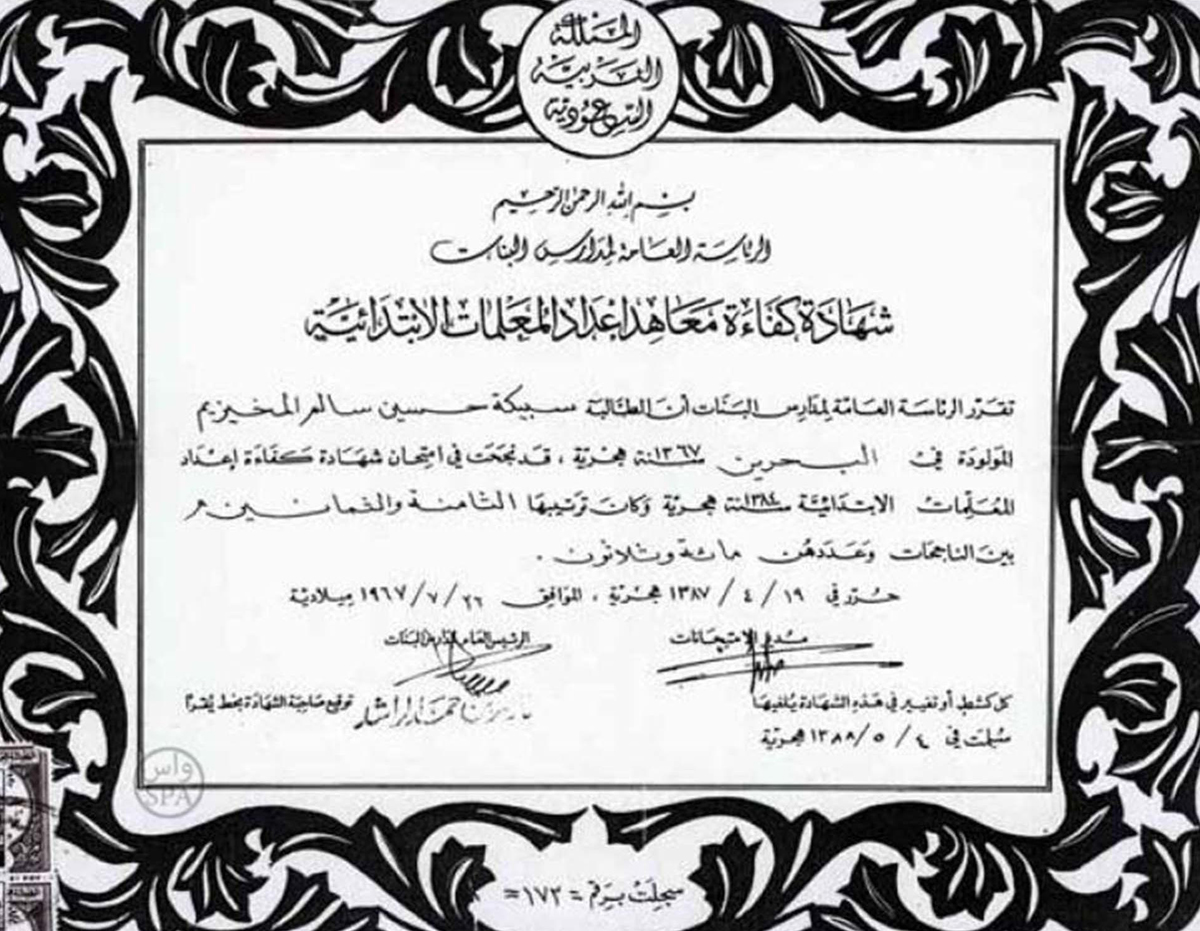 المملكة
العربية
السعودية
بسم الله الرحمن الرحيم
الرئاسة العامة لمدارس البنات
شهادة كفاءة معاهد إعداد المعلمات الابتدائية
تقرر الرئاسة العامة لمدارس البنات أن الطالبة سبيكة حسين سالم المخيزيم
المولودة في البحرين سنة ١٣٦٧ هجرية ، قد نجحت في امتحان شهادة كفاءة إعداد
المعلمات الابتدائية سنة ١٣٨٤ هجرية وكان ترتيبها الثامنة والثمانين
بين الناجحات وعددهن مائة وثلاثون .
حرر في ١٩ / ٤ / ١٣٨٧ هجرية ، الموافق ٢٦ / ٧ / ١٩٦٧ ميلادية
مدير الامتحانات
الرئيس العام لمدارس البنات
ناصر بن حمد الراشد
كل كشط أو تغيير في هذه الشهادة يلغيها
توقيع صاحبة الشهادة بخط يُقرأ
سلمت في ٤ / ٥ / ١٣٨٨ هجرية
واس
SPA
سجلت برقم = ١٧٣ =